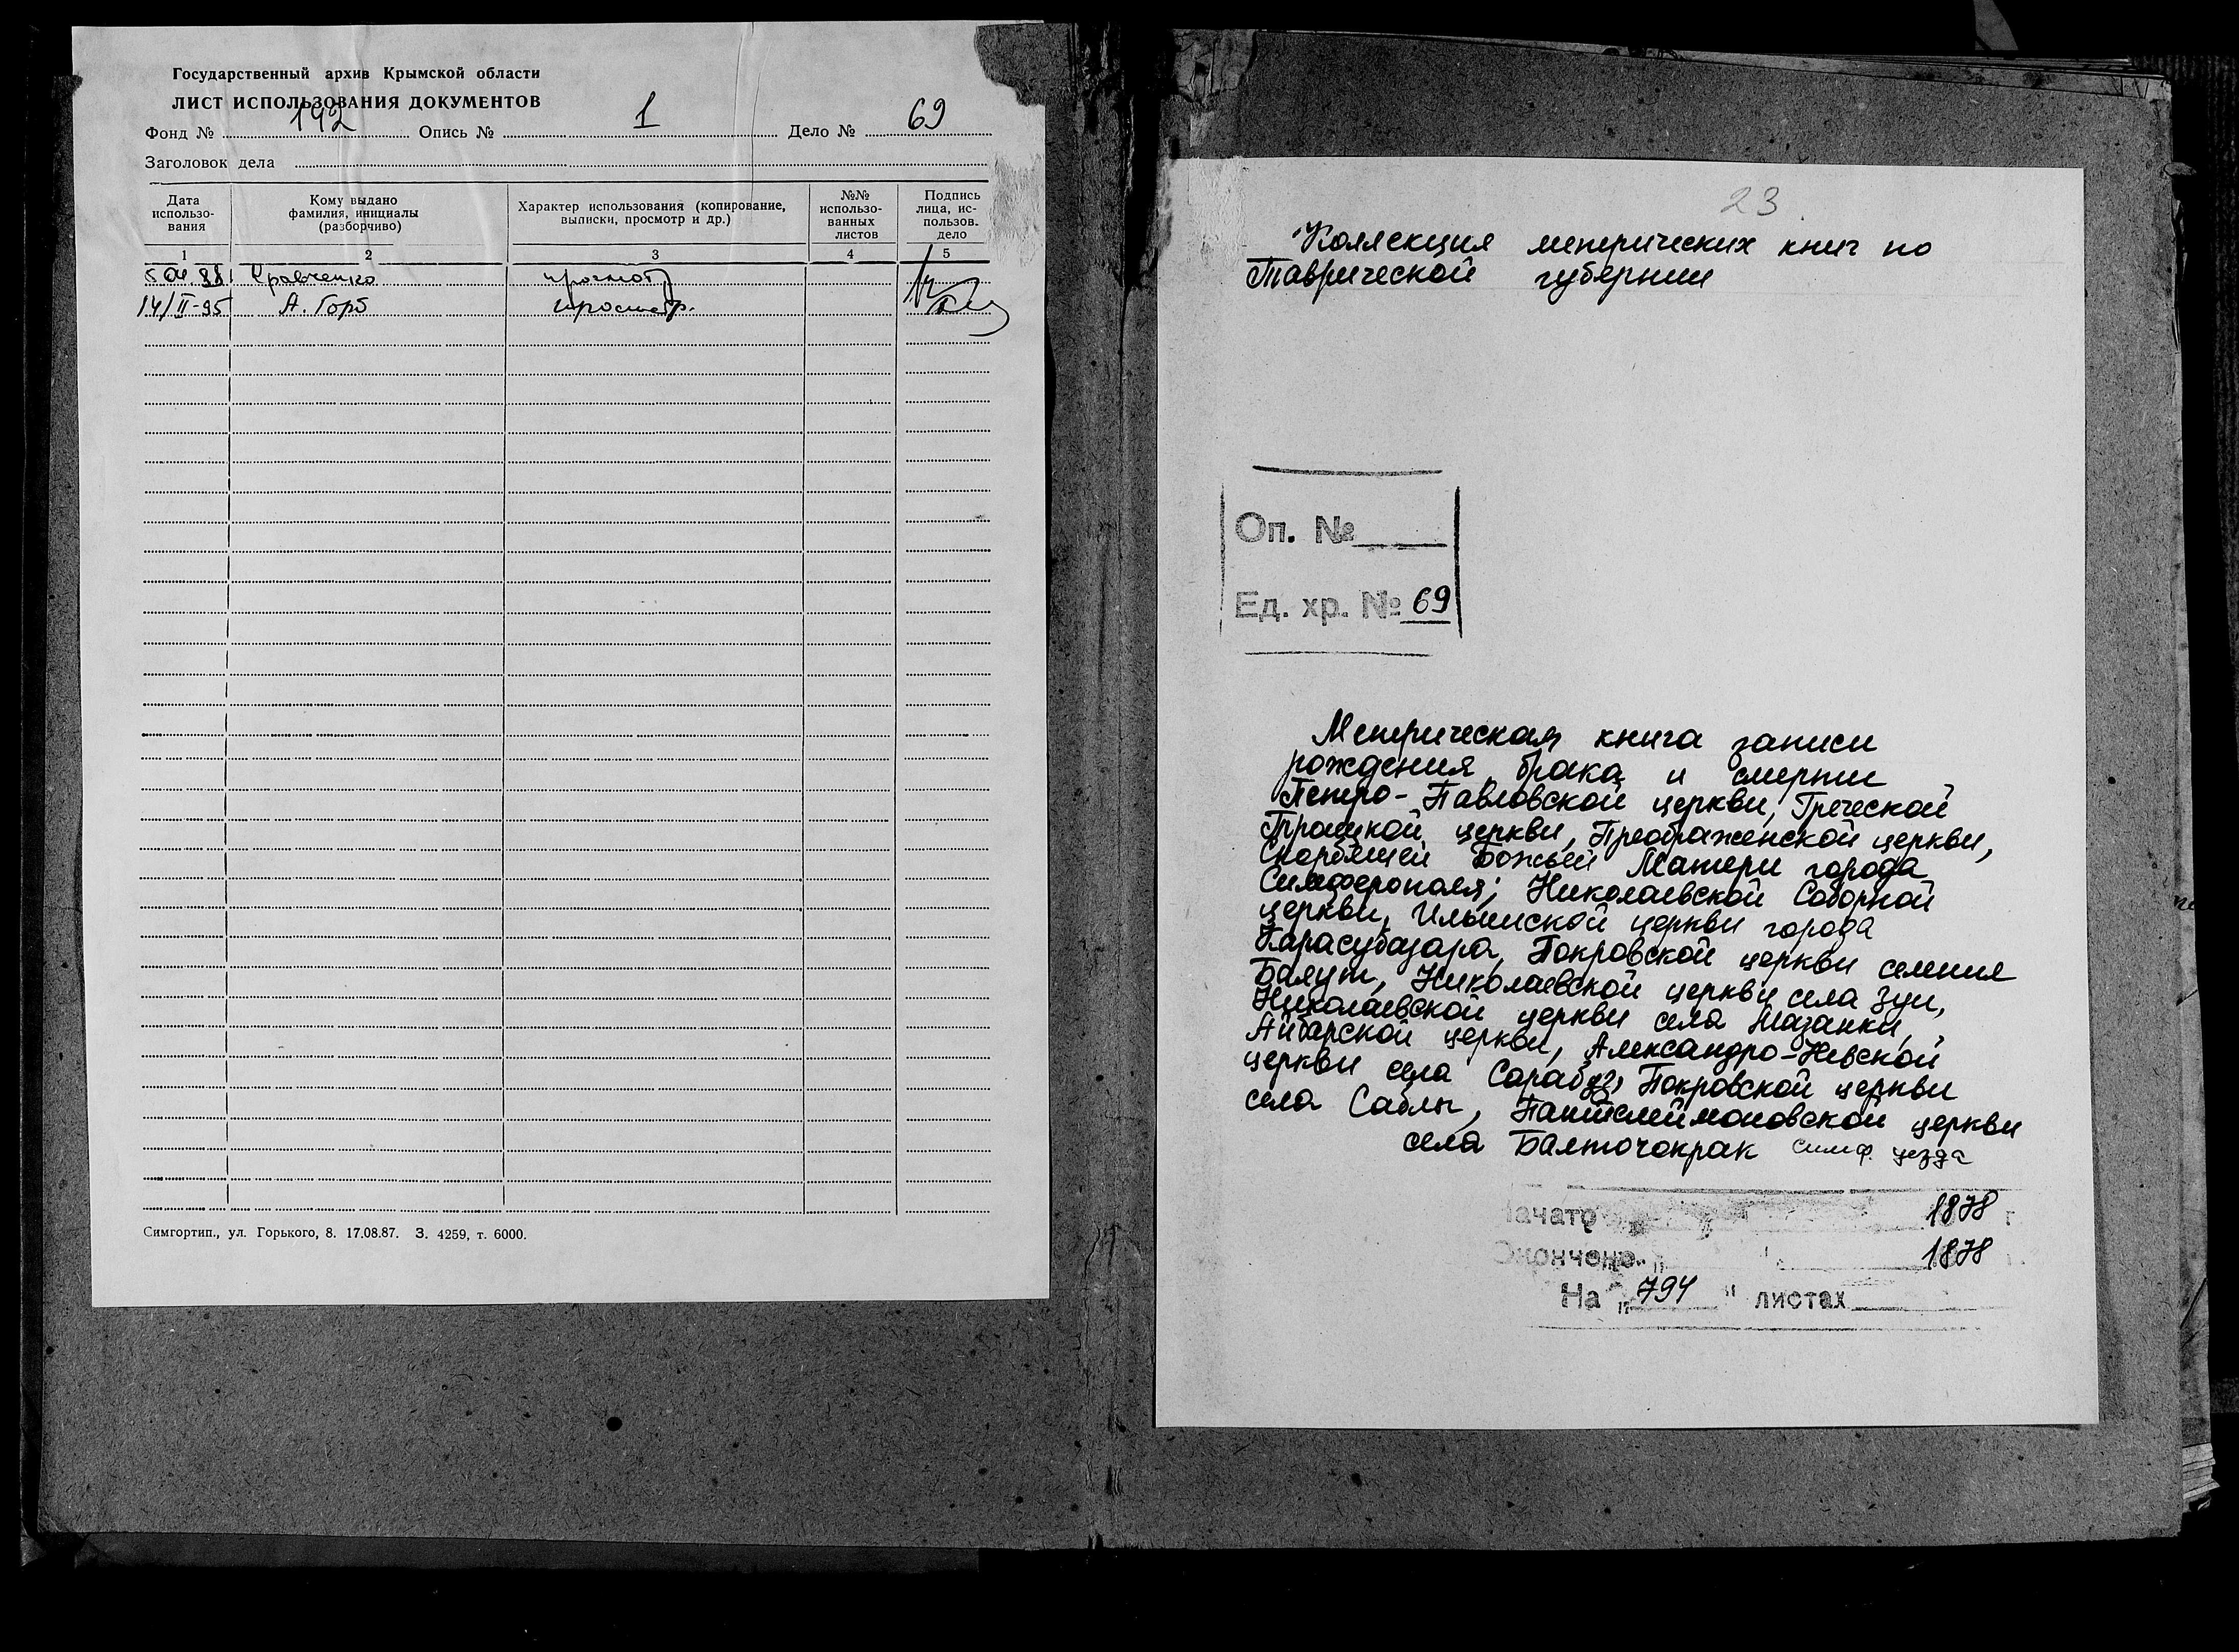 Государственный архив Крымской области
ЛИСТ ИСПОЛЬЗОВАНИЯ ДОКУМЕНТОВ
Фонд № 142 Опись № 1 Дело № 69
Заголовок дела
Дата использо-вания
Кому выдано фамилия, инициалы (разборчиво)
Характер использования (копирование, выписки, просмотр и др.)
№№ использо-ванных листов
Подпись лица, ис-пользов. дело
1 2 3 4 5
Кравченко
14/II-95 А. Горб просмотр.
Симгортип., ул. Горького, 8. 17.08.87. З. 4259, т. 6000.
23
Коллекция метрических книг по
Таврической губернии
Оп. №
Ед. хр. № 69
Метрическая книга записи
рождения, брака и смерти
Петро-Павловской церкви, Греческой
Троицкой церкви, Преображенской церкви,
Скорбящей Божьей Матери города
Симферополя; Николаевской Соборной
церкви, Ильинской церкви города
Карасубазара, Покровской церкви селения
Баяут, Николаевской церкви села Зуи,
Николаевской церкви села Мазанки,
Айбарской церкви, Александро-Невской
церкви села Сарабуз, Покровской церкви
села Саблы, Пантелеймоновской церкви
села Балточокрак симф. уезда
Начато 1878 г
Окончено 1878
На „794" листах